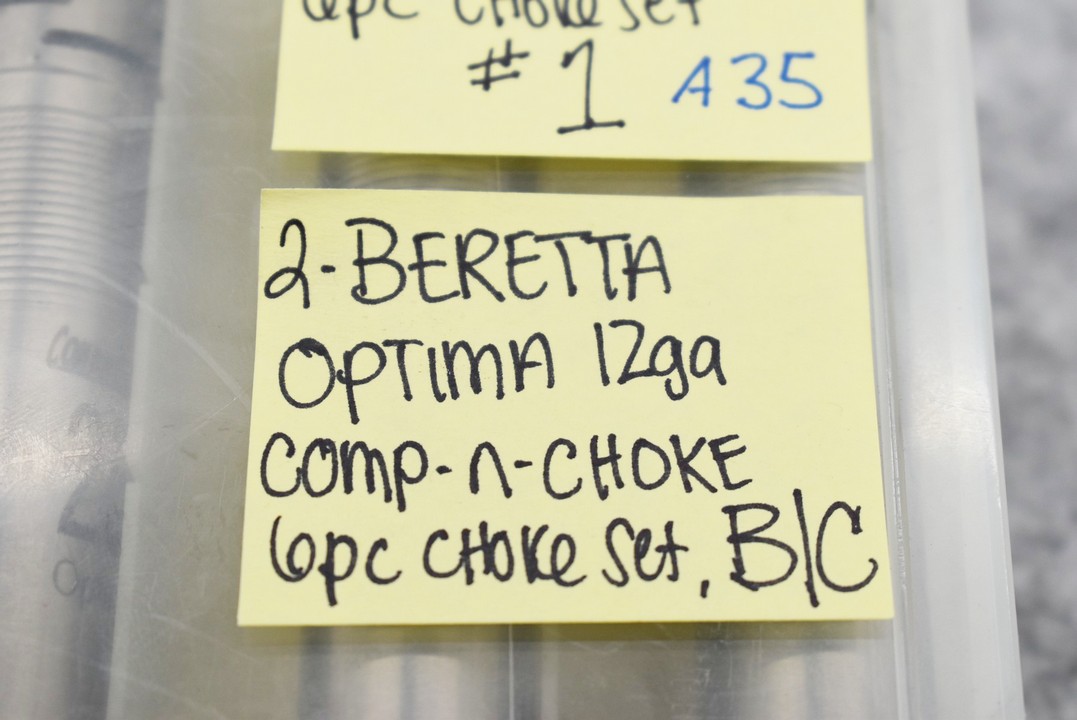 6pc CHOKE Set
#1 A35
2-BERETTA
OPTIMA 12ga
COMP-N-CHOKE
6pc CHOKE Set, B/C